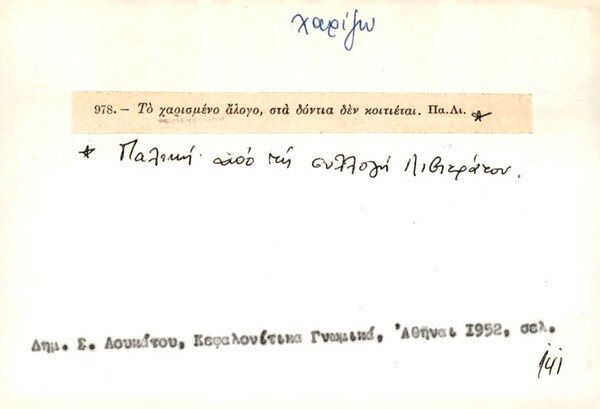 χαρίζω
978. — Τὸ χαρισμένο ἄλογο, στὰ δόντια δὲν κοιτιέται. Πα.Λι. *
* Παλική· ἀπό τή συλλογή Λιβιεράτου.
Δημ. Σ. Λουκάτου, Κεφαλονίτικα Γνωμικά, Ἀθῆναι 1952, σελ.
141